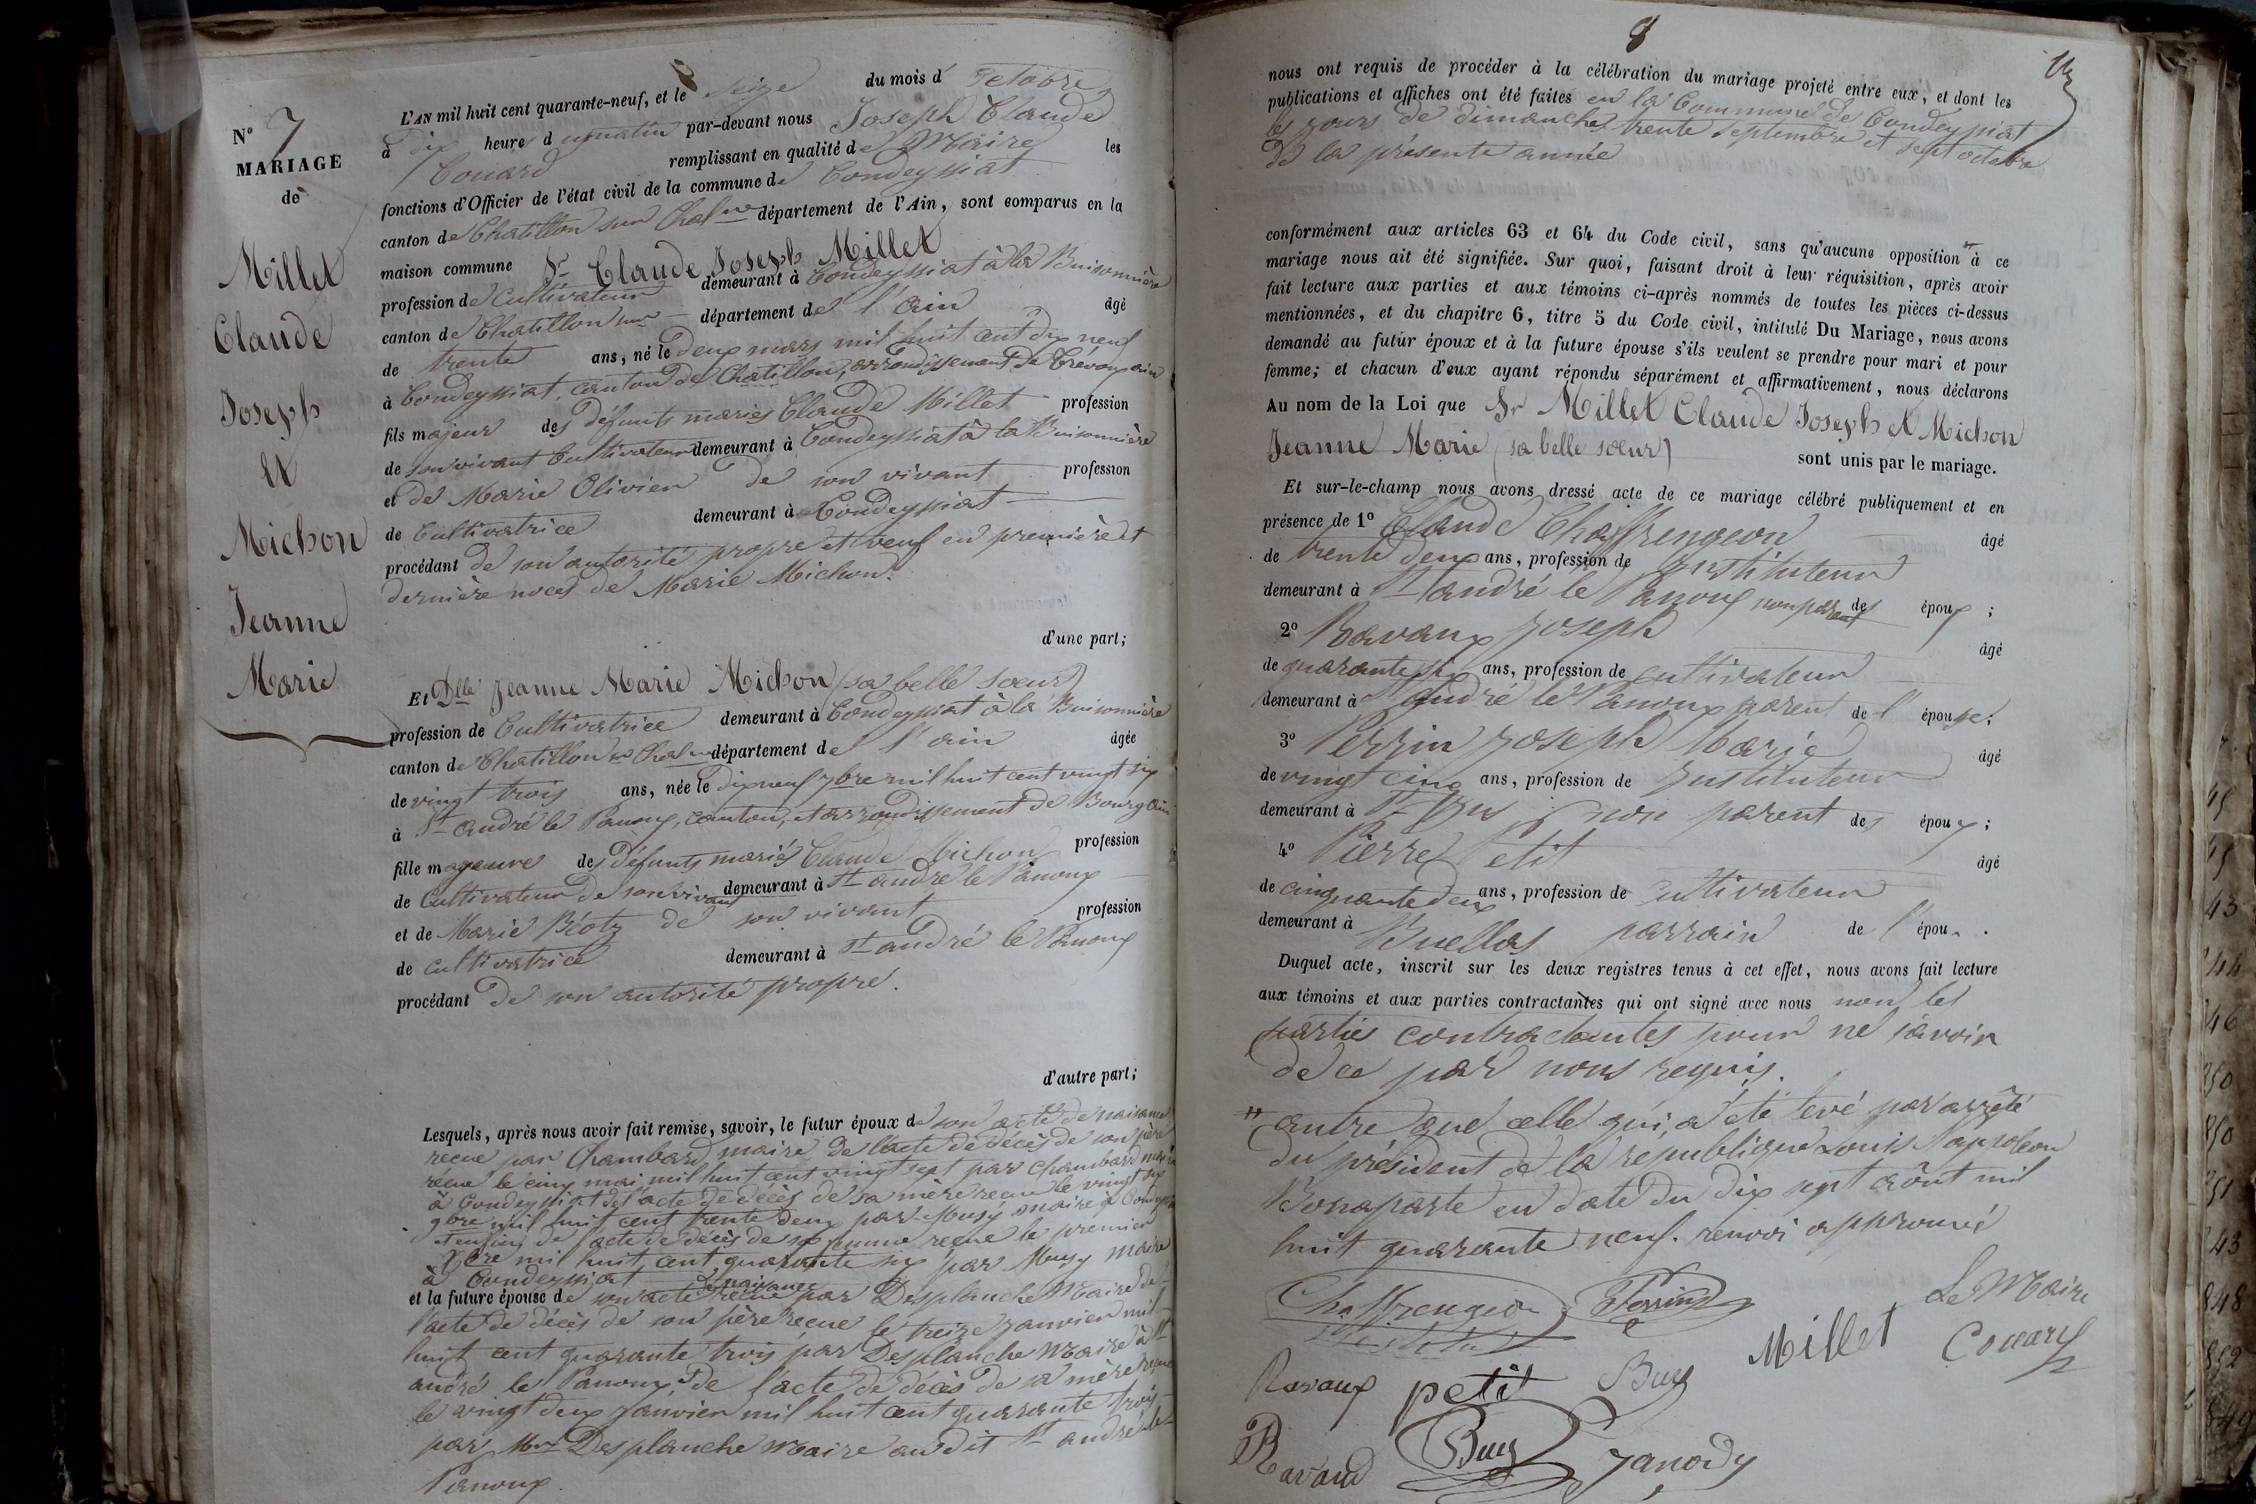 8
N° 7
MARIAGE
de
Millet
Claude
Joseph
Et
Michon
Jeanne
Marie
L'AN mil huit cent quarante-neuf, et le seize du mois d' octobre,
à Dix heure d u matin par-devant nous Joseph Claude
Couard remplissant en qualité de Maire les
fonctions d'Officier de l'état civil de la commune de Condeyssiat
canton de Chatillon sur Chalne département de l'Ain, sont comparus en la
maison commune Sr Claude Joseph Millet
profession de Cultivateur demeurant à Condeyssiat à la Buisonnière
canton de Chatillon sur département de l'ain âgé
de trente ans, né le deux mars mil huit cent dix neuf
à Condeyssiat, canton de Chatillon, arrondissement de Trévoux ain
fils majeur des défunts mariés Claude Millet profession
de son vivant Cultivateur demeurant à Condeyssiat à la Buisonnière
et de Marie Olivier de son vivant profession
de Cultivatrice demeurant à Condeyssiat
procédant de son autorité propre et veuf en première et
dernière noces de Marie Michon.
d'une part;
Et Dlle Jeanne Marie Michon (sa belle sœur)
profession de Cultivatrice demeurant à Condeyssiat à la Buisonnière
canton de Chatillon sur Chalne département de l'ain âgée
de vingt trois ans, née le dix neuf 7bre mil huit cent vingt six
à St andré le Panoux, canton, et arrondissement de Bourg ain
fille mageure des défunts mariés Claude Michon profession
de Cultivateur de son vivant demeurant à St andré le Panoux
et de Marie de son vivant profession
de cultivatrice demeurant à St andré le Panoux
procédant de son autorité propre.
d'autre part;
Lesquels, après nous avoir fait remise, savoir, le futur époux de son acte de naisance
reçue par Chambard maire de l'acte de décès de son père
reçue le cinq mai mil huit cent vingt sept par Chambard maire
à Condeyssiat de l'acte de décès de sa mère reçue le vingt six
9bre mil huit cent trente deux par Musy maire à Condeyssiat
et enfin de l'acte de décès de sa femme reçue le premier
Xbre mil huit cent quarante six par Musy maire
à Condeyssiat
et la future épouse de son acte de naisance reçue par Desplanche Maire de
l'acte de décès de son père reçue le treize janvier mil
huit cent quarante trois par Desplanche Maire à St
andré le Panoux, de l'acte de décès de sa mère reçue
le vingt deux janvier mil huit cent quarante trois
par Mr Desplanche Maire au dit St andré le
Panoux.
8
nous ont requis de procéder à la célébration du mariage projeté entre eux, et dont les
publications et affiches ont été faites en la Commune de Condeyssiat
les jours de dimanche trente septembre et sept octobre
de la présente année
conformément aux articles 63 et 64 du Code civil, sans qu'aucune opposition " à ce
mariage nous ait été signifiée. Sur quoi, faisant droit à leur réquisition, après avoir
fait lecture aux parties et aux témoins ci-après nommés de toutes les pièces ci-dessus
mentionnées, et du chapitre 6, titre 5 du Code civil, intitulé Du Mariage, nous avons
demandé au futur époux et à la future épouse s'ils veulent se prendre pour mari et pour
femme; et chacun d'eux ayant répondu séparément et affirmativement, nous déclarons
Au nom de la Loi que Sr Millet Claude Joseph et Michon
Jeanne Marie (sa belle sœur) sont unis par le mariage.
Et sur-le-champ nous avons dressé acte de ce mariage célébré publiquement et en
présence de 1° Claude Chaffrengeon âgé
de trente deux ans, profession de Instituteur
demeurant à St andré le Panoux non parent des époux ;
2° Ravaux Joseph âgé
de quarante six ans, profession de cultivateur
demeurant à St andré le Panoux parent de l'épouse;
3° Perrin Joseph Marie âgé
de vingt cinq ans, profession de Instituteur
demeurant à St non parent des époux;
4° Pierre Petit âgé
de cinquante deux ans, profession de cultivateur
demeurant à Buellas parrain de l'épou .
Duquel acte, inscrit sur les deux registres tenus à cet effet, nous avons fait lecture
aux témoins et aux parties contractantes qui ont signé avec nous non les
parties contractantes pour ne savoir
de ce par nous requis.
" autre que celle qui, a été levé par arrêté
du président de la république Louis Napoléon
Bonaparte en date du dix sept août mil
huit quarante neuf. renvoi approuvé
Chaffrengeon Perrin Le Maire
Millet Couard
Ravaux petit Buy
Ravaud Buy Janody